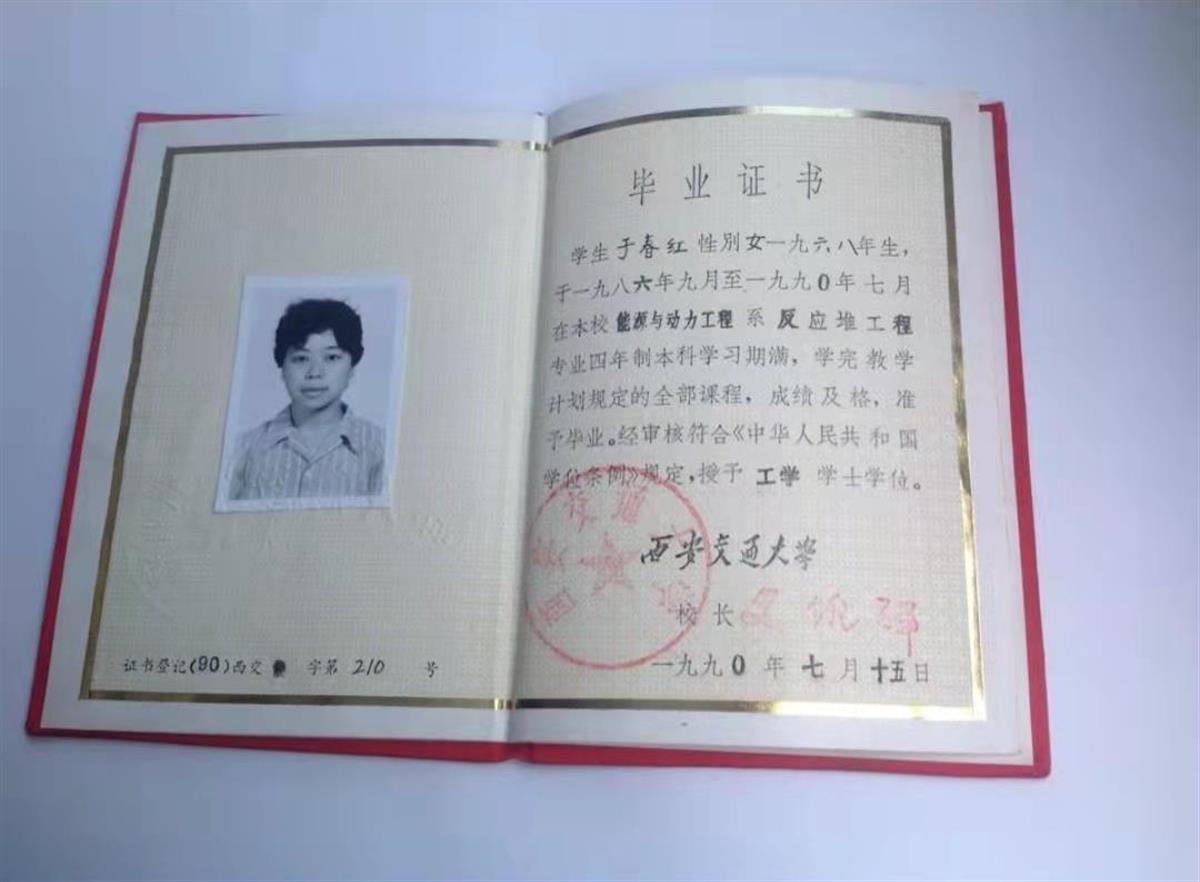 证书登记(90)西交 字第210号
毕业证书
学生于春红性别女一九六八年生,
于一九八六年九月至一九九〇年七月
在本校能源与动力工程系反应堆工程
专业四年制本科学习期满，学完教学
计划规定的全部课程，成绩及格，准
予毕业。经审核符合《中华人民共和国
学位条例》规定，授予工学学士学位。
西安交通大学
校长
一九九〇年七月十五日